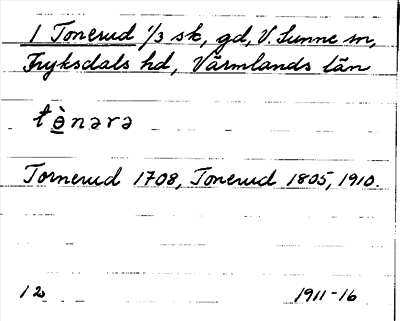 1 Tonerud 1/3 sk, gd, V. Sunne sn,
Fryksdals hd, Värmlands län
tè̱nərə
Tornerud 1708, Tonerud 1805, 1910.
12
1911-16